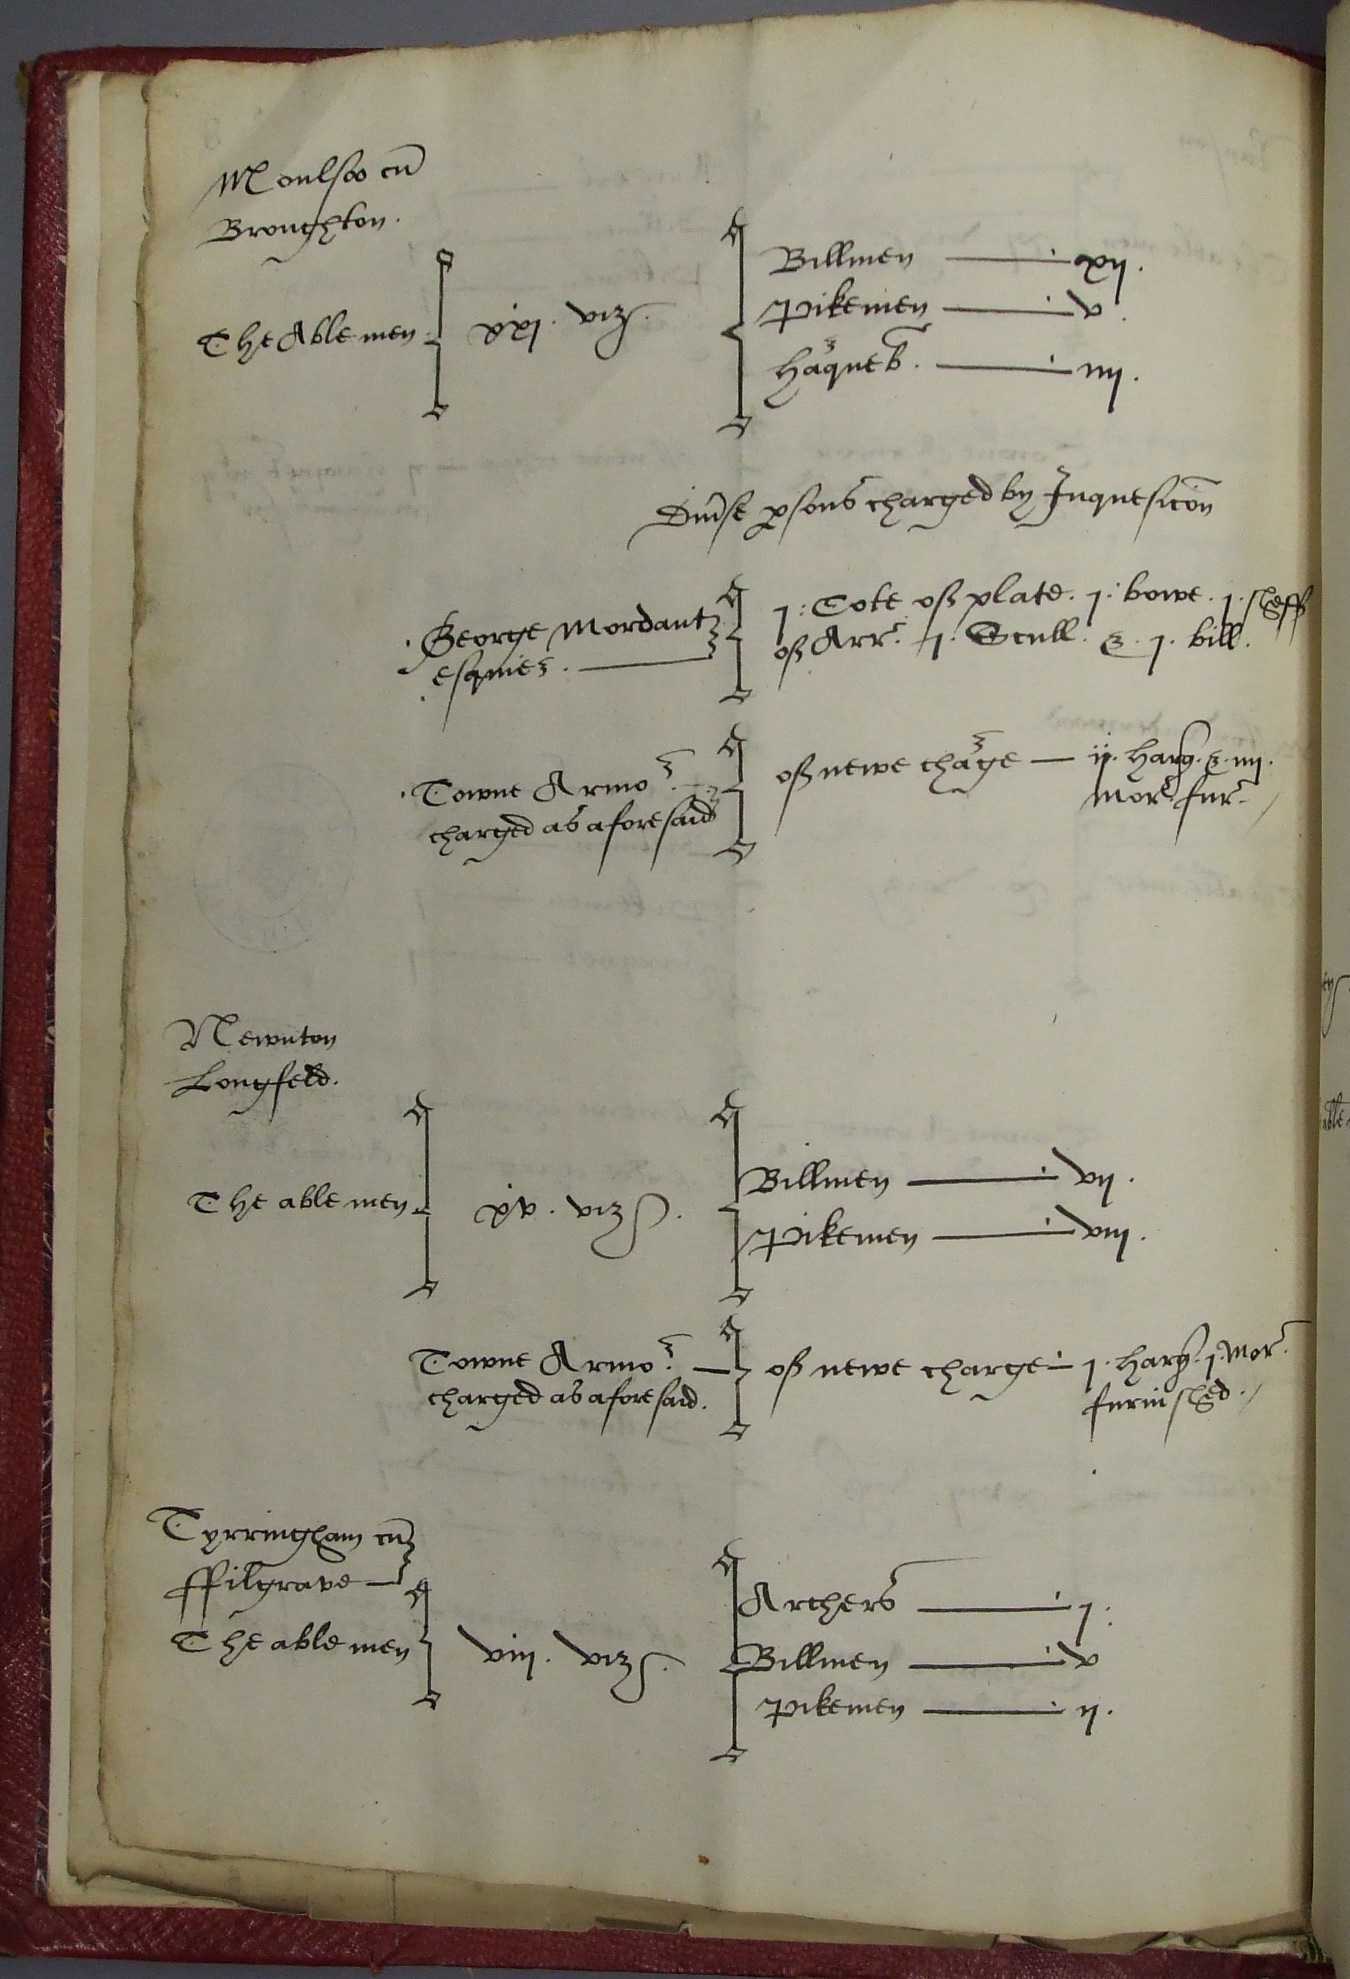 Moulsoo cu͠
Broughton.
The Able men xxj. vizβ.
Billmen — xij.
Pikemen — v.
Haqueb̃. — iiij.
Diu͠se p̱sons charged by Inquesico͠n
George Mordant esquier. —
j. Cote of plate. j. bowe. j. sheff
of Arr̃. j. Scull. & j. bill.
Towne Armor̃.
charged as aforesaid
of newe charge — ij. harq̃. & iiij.
Mor̃. fur̃.
Newnton
Longfeld.
The able men. xv. vizβ.
Billmen — vij.
Pikemen — viij.
Towne Armor̃. —
charged as aforesaid.
of newe charge — j. harq̃. j. Mor̃.
furnished.
Tyrringham cu͠
ffilgrave —
The able men viij. vizβ.
Archers — j.
Billmen — v
Pikemen — ij.